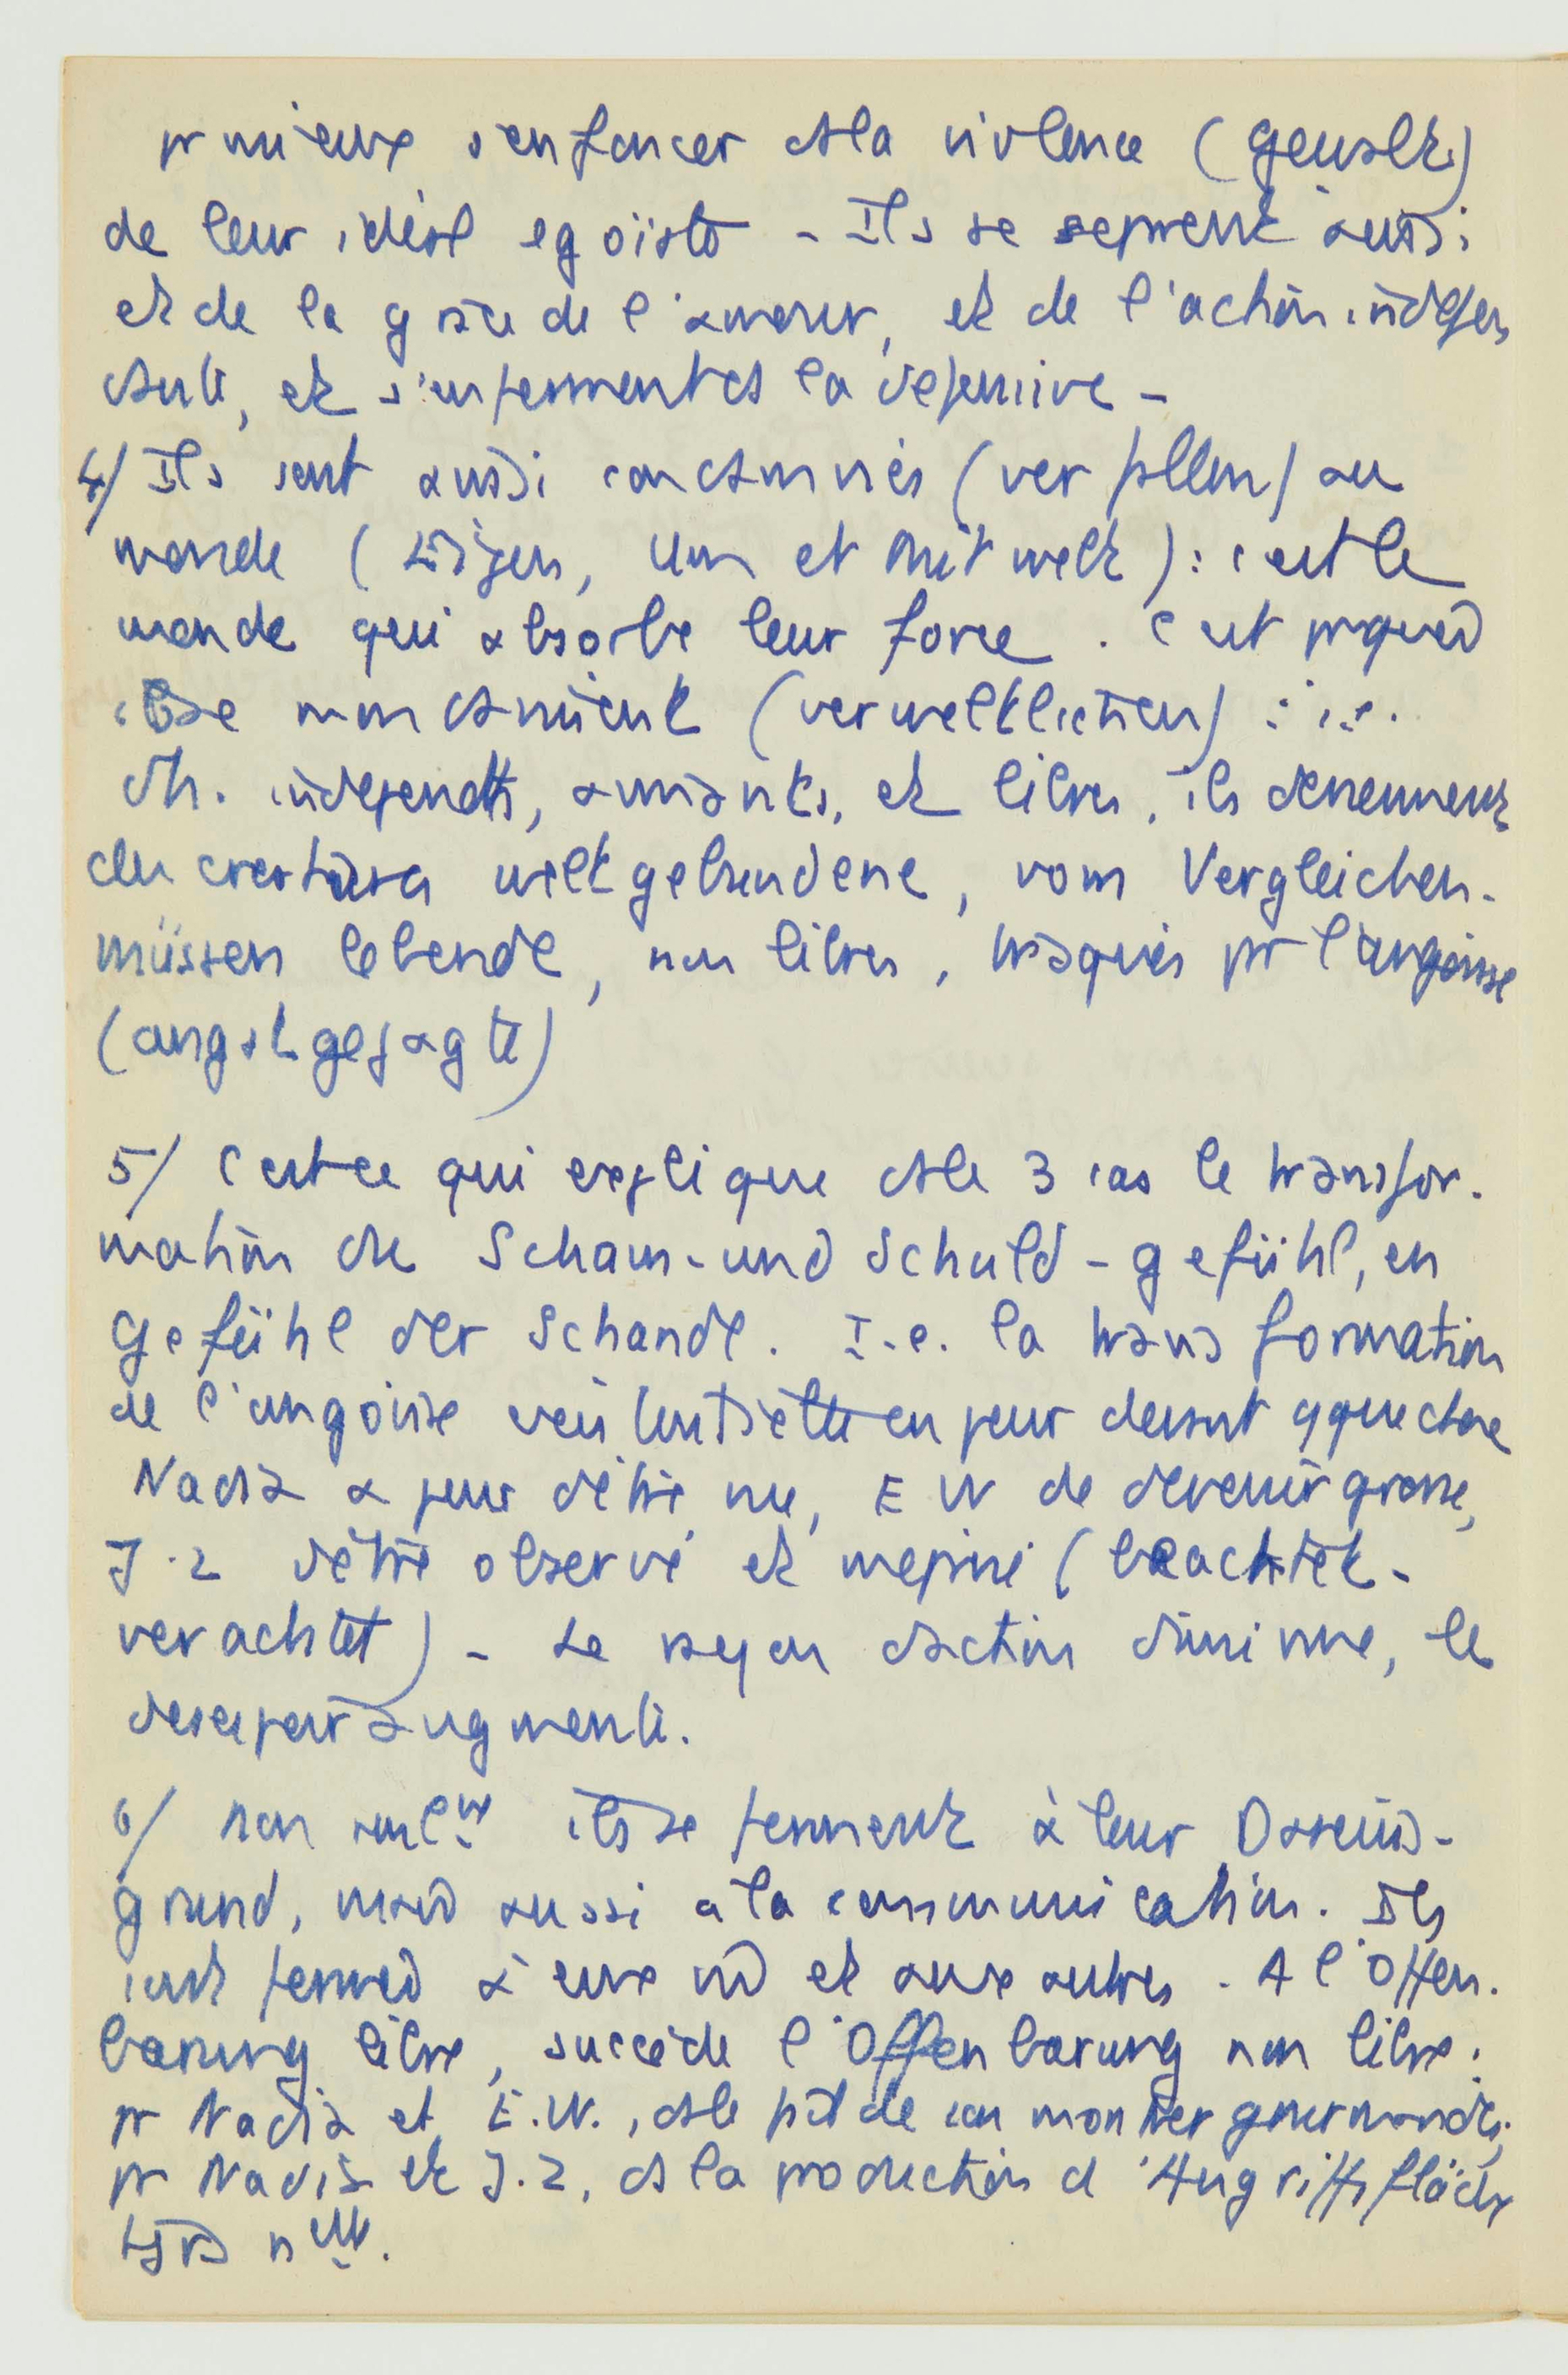 pr mieux s'enfoncer ds la violence (Gewalt)
de leur idéal egoïste - Ils se separent aussi
et de la grace de l'amour, et de l'action indépen
dante, et s'enferment ds la defensive -
4/ Ils sont aussi condamnés (verfallen) au
monde (Eigen, Um et Mitwelt) : c'est le
monde qui absorbe leur force. C'est pquoi
ils se mondanisent (verweltlichen) : i.e.
d'h. indépendts, aimants, et libres, ils deviennent
des creatures weltgebundene, vom Vergleichen-
müssen lebende, non libres, traqués pr l'angoisse
(angstgejagte)
5/ C'est ce qui explique ds le 3 cas le transfor-
mation du Scham-und Schuld-gefühl, en
Gefühl der Schande. I-e. la transformation
de l'angoisse existentielle en peur devant qque chose
Nadia a peur d'être nue, E W de devenir grosse,
J.Z d'être observé et méprisé (beachtet-
verachtet) - Le rayon d'action diminue, le
desespoir augmente.
6/ Non seulemt ils se ferment à leur Daseins-
grund, mais aussi a la communication. Ils
sont fermés à eux mm et aux autres. A l'Offen-
barung libre, succède l'Offenbarung non libre:
pr Nadia et E.W., ds le fait de se montrer gourmandes,
pr Nadia et J.Z, ds la production d'Angriffsfläche
tjrs nlle.